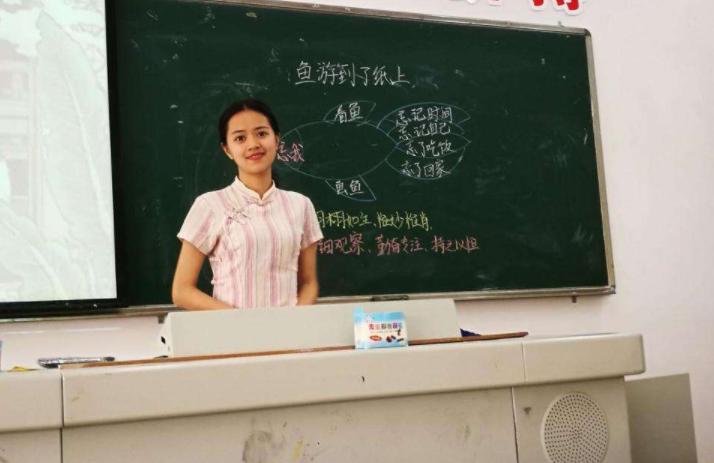 鱼游到了纸上
看鱼
忘我
画鱼
忘记时间
忘记自己
忘了吃饭
忘了回家
栩栩如生、惟妙惟肖
细观察、勤奋专注、持之以恒